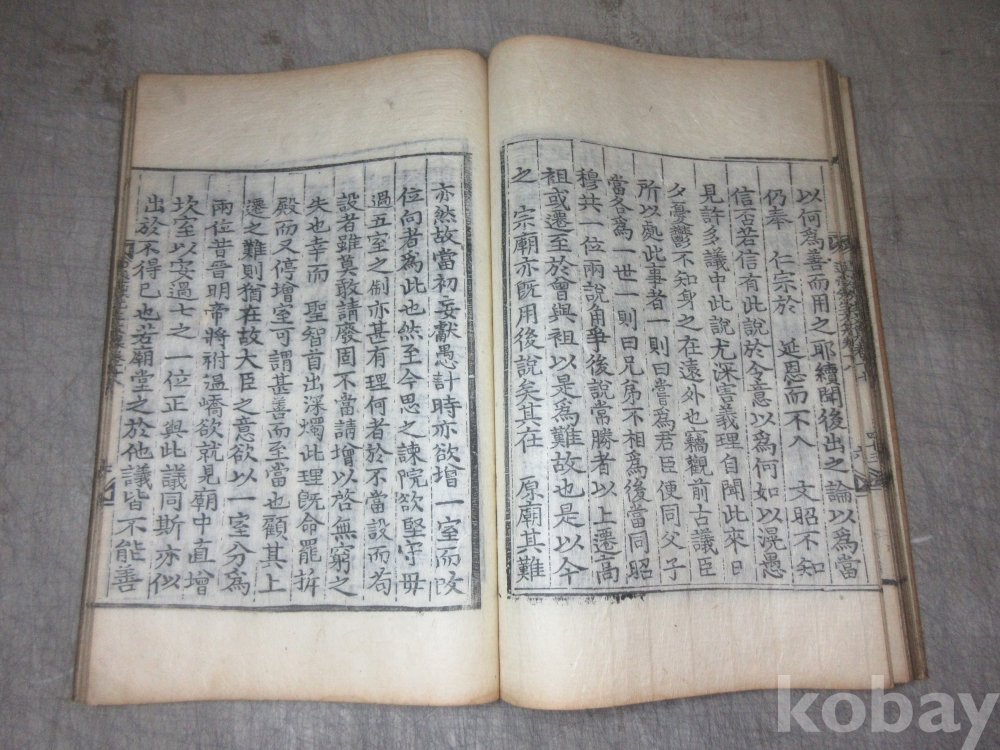 以何為善而用之耶續聞後出之論以為當
仍奉 仁宗於 延恩而不入 文昭不知
信否若信有此說於令意以為何如以滉愚
見許多議中此說尤深害義理自聞此來日
夕憂鬱不知身之在遠外也竊觀前古議臣
所以處此事者一則曰嘗為君臣便同父子
當各為一世一則曰兄弟不相為後當同昭
穆共一位兩說角爭後說常勝者以上遷高
祖或遷至於曾與祖以是為難故也是以今
之 宗廟亦旣用後說矣其在 原廟其難
亦然故當初妄獻愚計時亦欲增一室而改
位向者為此也然至今思之諫院欲堅守毋
過五室之制亦甚有理何者於不當設而苟
設者雖莫敢請廢固不當請增以啓無窮之
失也幸而 聖智首出深燭此理旣命罷拆
殿而又停增室可謂甚善而至當也顧其上
遷之難則猶在故大臣之意欲以一室分為
兩位昔晉明帝將祔溫嶠欲就見廟中直增
坎室以妥過七之一位正與此議同斯亦似
出於不得已也若廟堂之於他議皆不能善
kobay